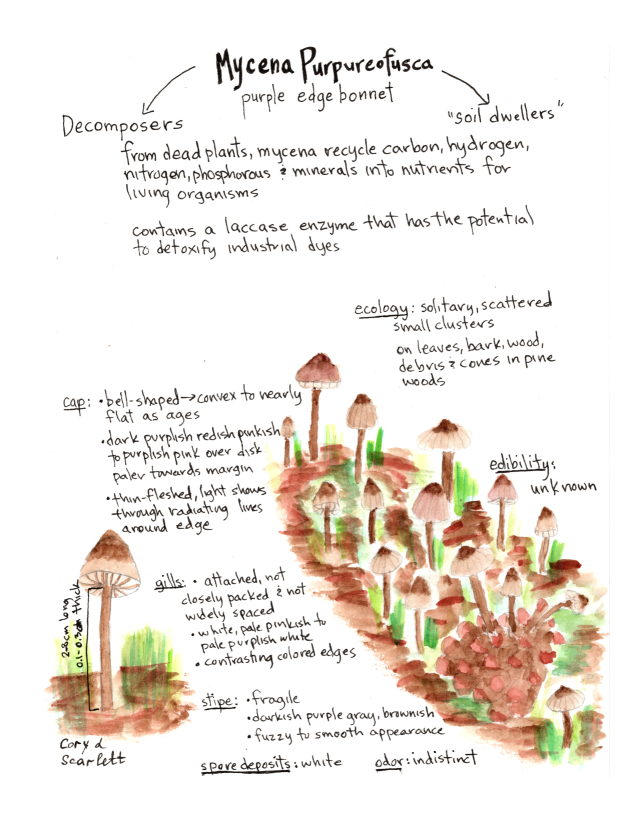 Mycena Purpureofusca
purple edge bonnet
Decomposers
"soil dwellers"
from dead plants, mycena recycle carbon, hydrogen,
nitrogen, phosphorous & minerals into nutrients for
living organisms
contains a laccase enzyme that has the potential
to detoxify industrial dyes
ecology: solitary, scattered
small clusters
on leaves, bark, wood,
debris & cones in pine
woods
cap: • bell-shaped → convex to nearly
flat as ages
• dark purplish redish pinkish
to purplish pink over disk
paler towards margin
• thin-fleshed, light shows
through radiating lines
around edge
edibility:
unknown
gills: • attached, not
closely packed & not
widely spaced
• white, pale pinkish to
pale purplish white
• contrasting colored edges
2-8cm long
0.1-0.3cm thick
stipe: • fragile
• darkish purple gray, brownish
• fuzzy to smooth appearance
Cory &
Scarlett
spore deposits: white
odor: indistinct